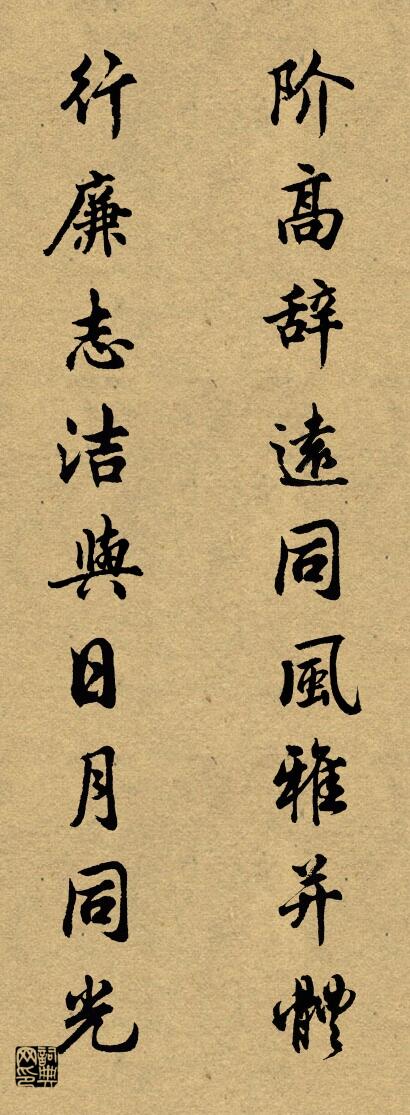 阶高辞遠同風雅并體
行廉志洁與日月同光
詞典网印